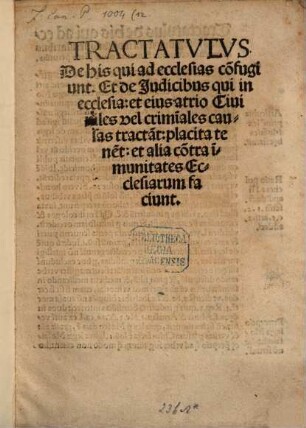 TRACTATVLVS.
De his qui ad ecclesias cõfugi
unt. Et de Judicibus qui in
ecclesia: et eius atrio Ciui
les vel crimĩales cau-
sas tractãt: placita te
nẽt: et alia cõtra ĩ
munitates Ec-
clesiarum fa
ciunt.
BIBLIOTHECA
REGIA
MONACENSIS